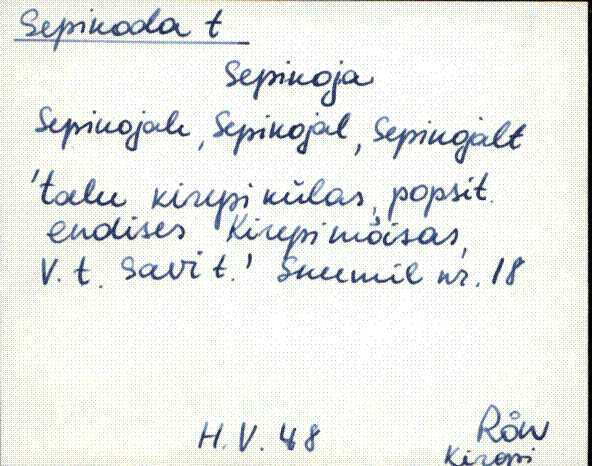 Sepikoda t
Sepikoja
Sepikojale, Sepikojal, Sepikojalt
'talu kirepi külas, popsit.
endises Kirepi mõisas,
V. t. Savi t.' Suumõl nr. 18
H. V. 48
Rõn
Kirepi